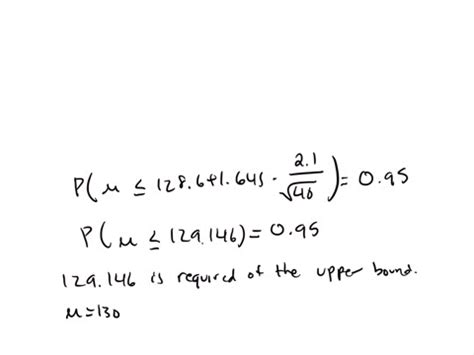 P(μ ≤ 128.6+1.645 · 2.1/√40) = 0.95
P(μ ≤ 129.146) = 0.95
129.146 is required of the upper bound.
μ=130